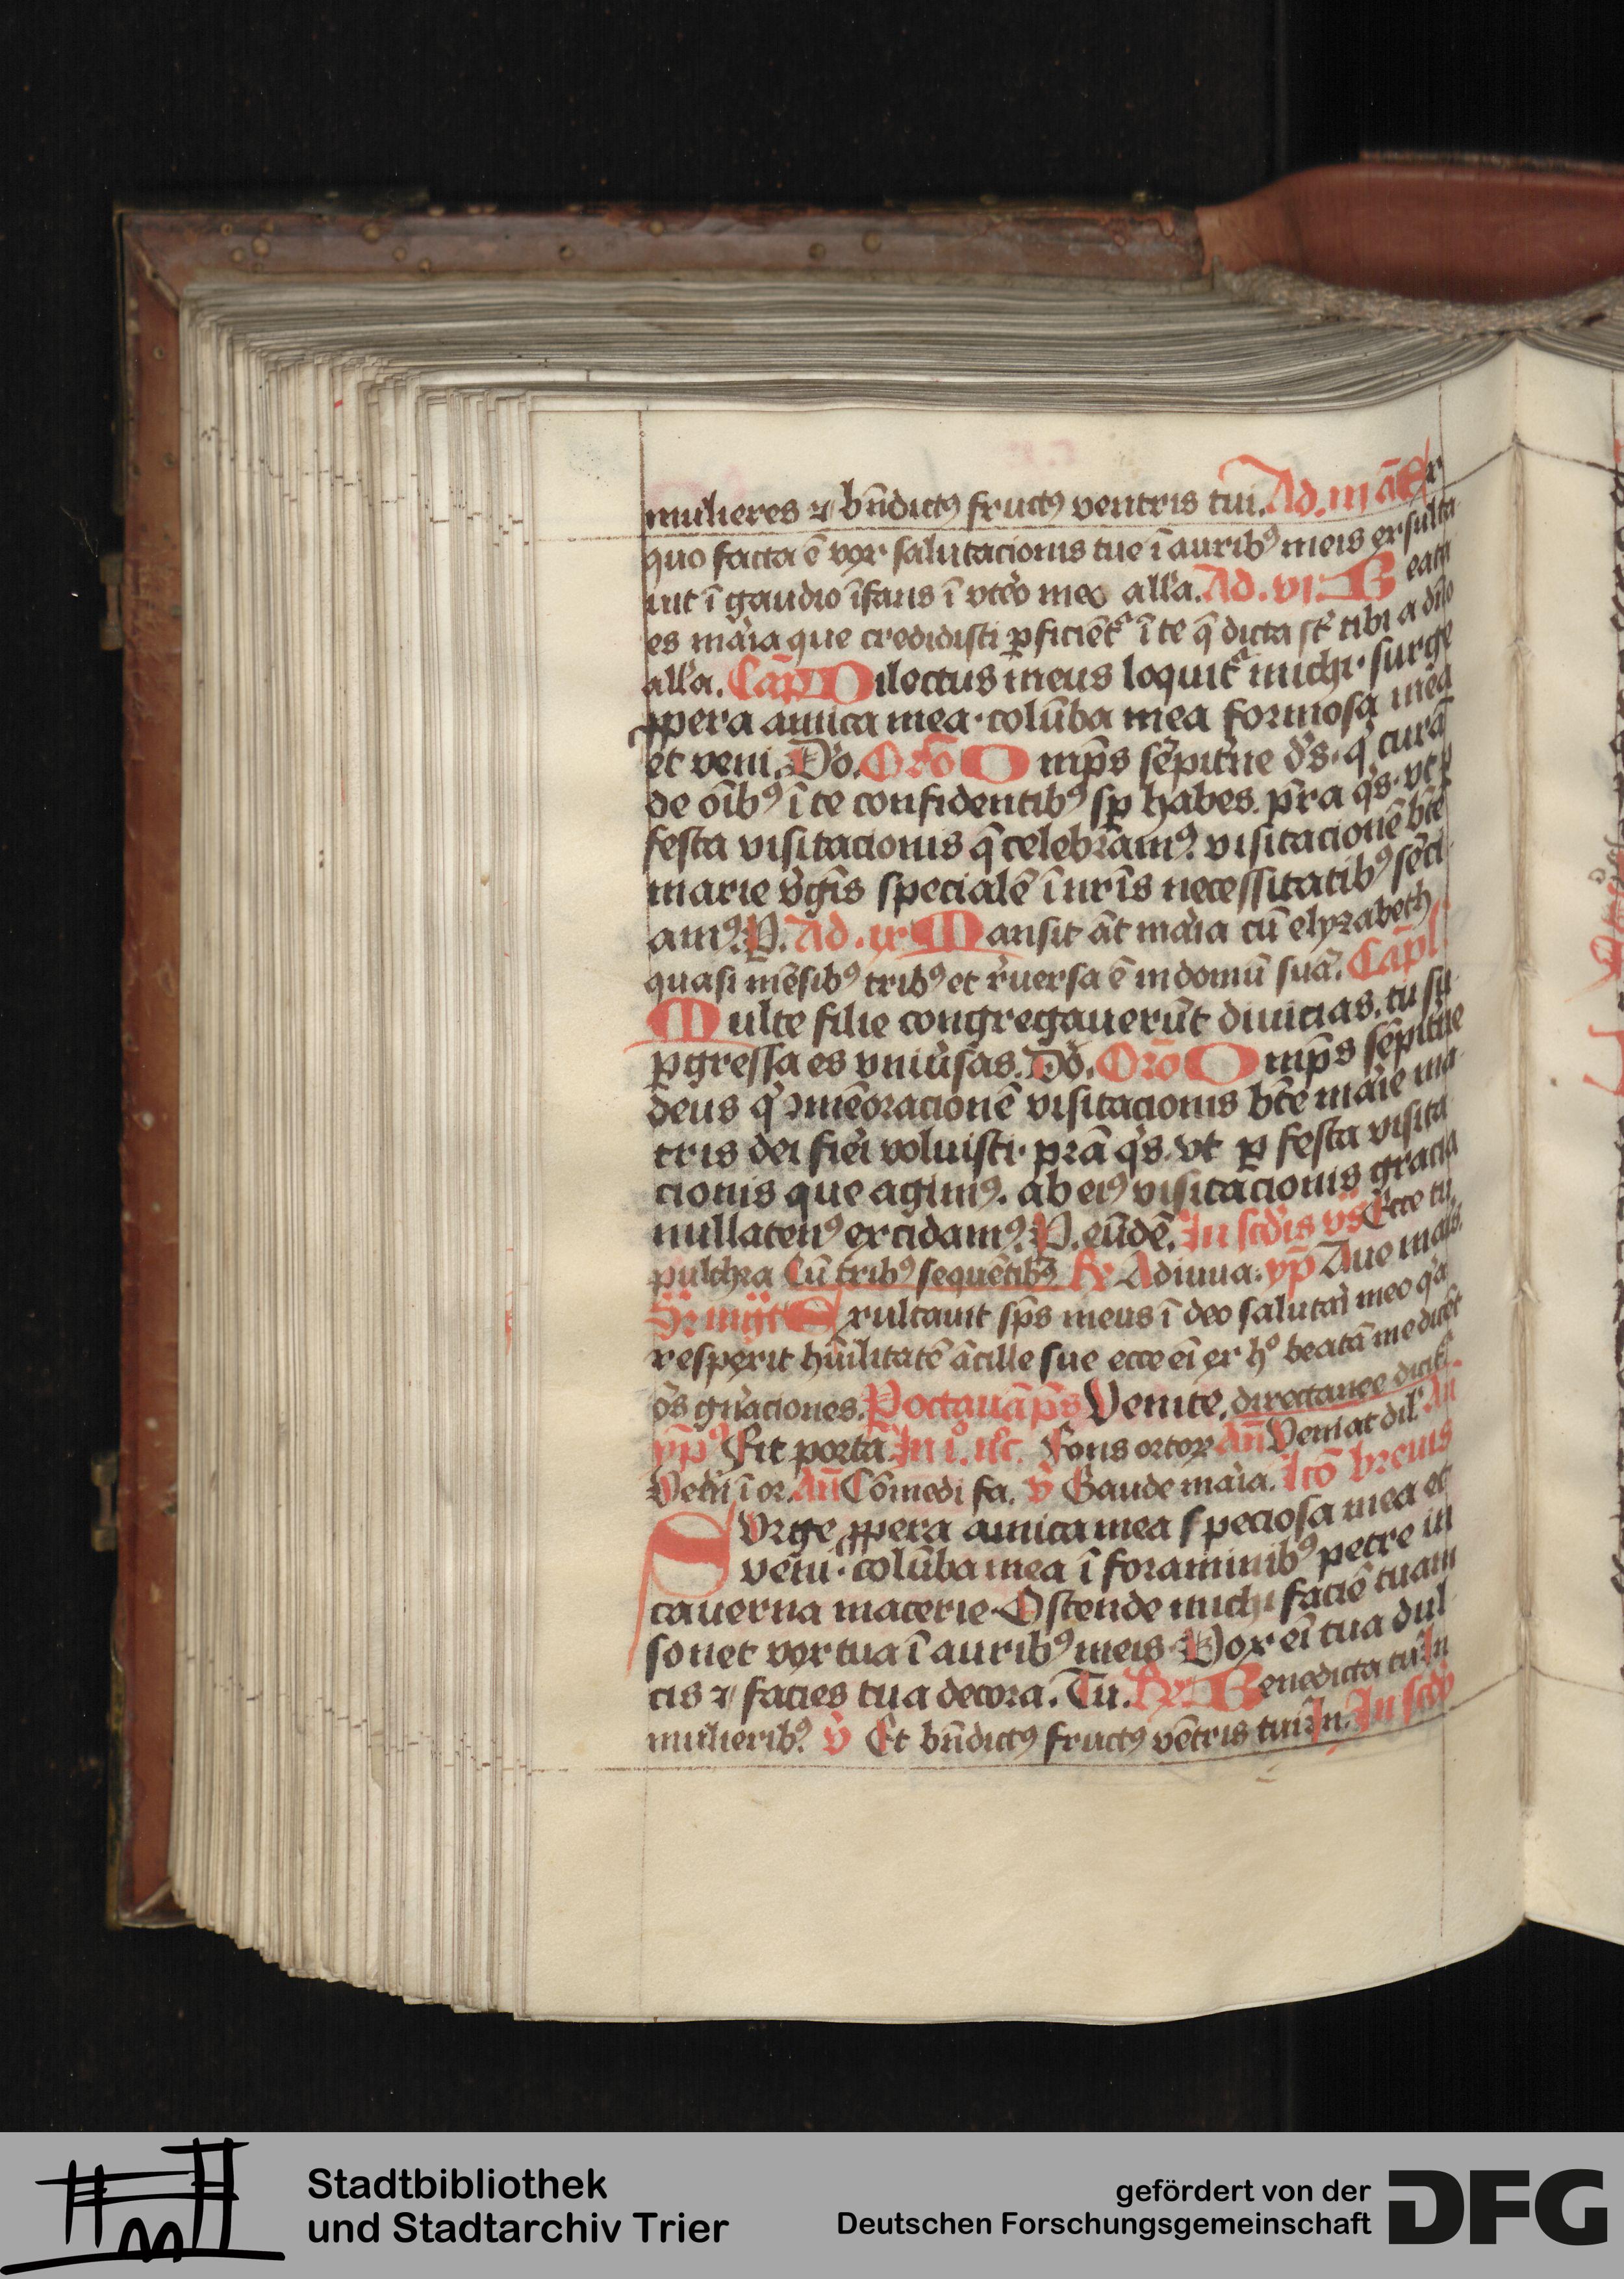 mulieres ⁊ bn̄dictꝰ fructꝰ ventris tui. Ad. iii a͞ Ex
quo facta ē vox salutacionis tue ī auribꝰ meis exsulta
uit ī gaudio īfans ī vt͛o meo all'a. Ad. vi. Beata
es mar̍ia que credidisti ꝑficiēt͛ ī te q̄ dicta st̄ tibi a dn̄o
all'a. Cap̄ Dilectus meus loquit͛ michi. surge
ꝓpera amica mea. colūba mea formosa mea
et veni. Do. Or̄o Omp̄s sēpit͛ne ds̄. q' curā
de oībꝰ ī te confidentibꝰ sꝑ habes. pr̄a q̄s. vt ꝑ
festa visitacionis q̄ celebramꝰ. visitacionē bt̄e
marie v͛gīs specialē ī nr̄is necessitatibꝰ sēci
amꝰ. P. Ad. ix Mansit āt maria cū elyzabeth
quasi mēsibꝰ tribꝰ et r͛uersa ē in domū suā. Cap̄l
Multe filie congregauerūt diuicias. tu su
ꝑgressa es vniu͛sas. Do. Oro Omp̄s sēpit͛ne
deus q' ꝯmēoracionē visitacionis bt̄e mar̍ie ma
tris dei fi͛ei voluisti. prā q̄s. vt ꝑ festa visita
cionis que agimꝰ. ab eiꝰ visitacionis gracia
nullatenꝰ excidamꝰ. P. eūdē. In scd̄is vs̄ Ecce tu
pulchra Cū tribꝰ sequētibꝰ ℟ Adiuua. yp̄ Aue maris
Exultauit sp̄s meus ī deo salutar̍i meo q'a
respexit hūilitatē ācille sue ecce eī ex hͦ beatā me dicēt
ōs gn̄aciones. P octauā p̄s Venite. directanee dicit͛
yp̄ꝰ Fit porta In i. nͦc. Fons ortoꝝ an̄ Veniat dil' An̄
Veni ī or. An̄ Cōmedi fa. v̄ Gaude mar̍ia. lc̄o breuis
Surge ꝓpera amica mea speciosa mea et
veni. colūba mea ī foraminibꝰ petre in
cauerna macerie. Ostende michi faciē tuam
sonet vox tua ī auribꝰ meis. Vox eī tua dul
cis ⁊ facies tua decora. Tu. ℟ Benedicta tu In
mulieribꝰ. v̄ Et bn̄dictꝰ fructꝰ vētris tui In. In scd̄o
Stadtbibliothek
und Stadtarchiv Trier
gefördert von der
Deutschen Forschungsgemeinschaft
DFG